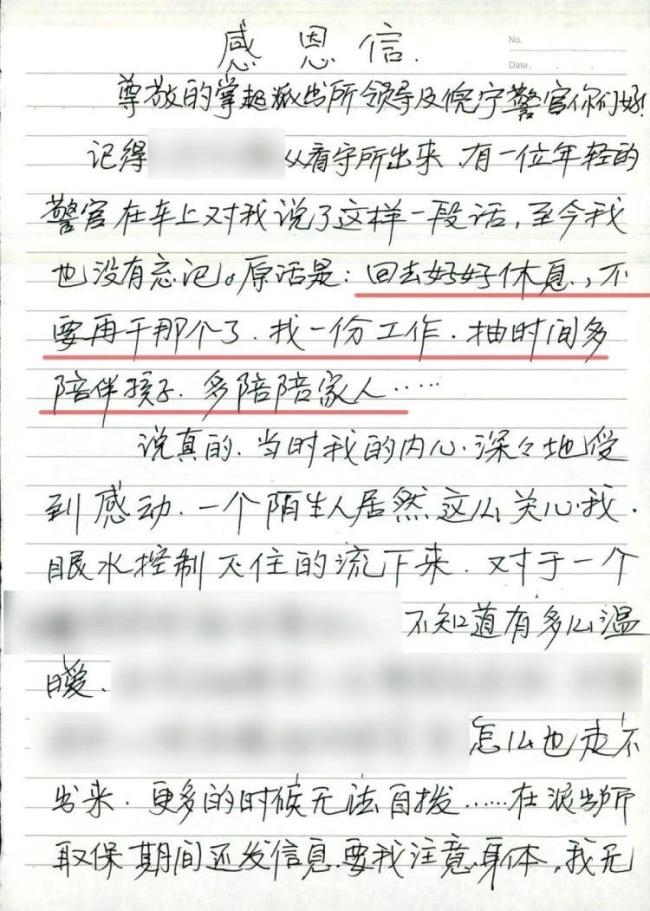 感恩信.
No.
Date.
尊敬的掌起派出所领导及倪宁警官你们好!
记得
从看守所出来.有一位年轻的
警官在车上对我说了这样一段话,至今我
也没有忘记。原话是:回去好好休息.,不
要再干那个了.找一份工作.抽时间多
陪伴孩子.多陪陪家人……
说真的.当时我的内心.深々地受
到感动.一个陌生人居然这么关心我.
眼水控制不住的流下来.对于一个
不知道有多么温
暖.
怎么也走不
出来.更多的时候无法自拨……在派出所
取保期间还发信息.要我注意身体,我无